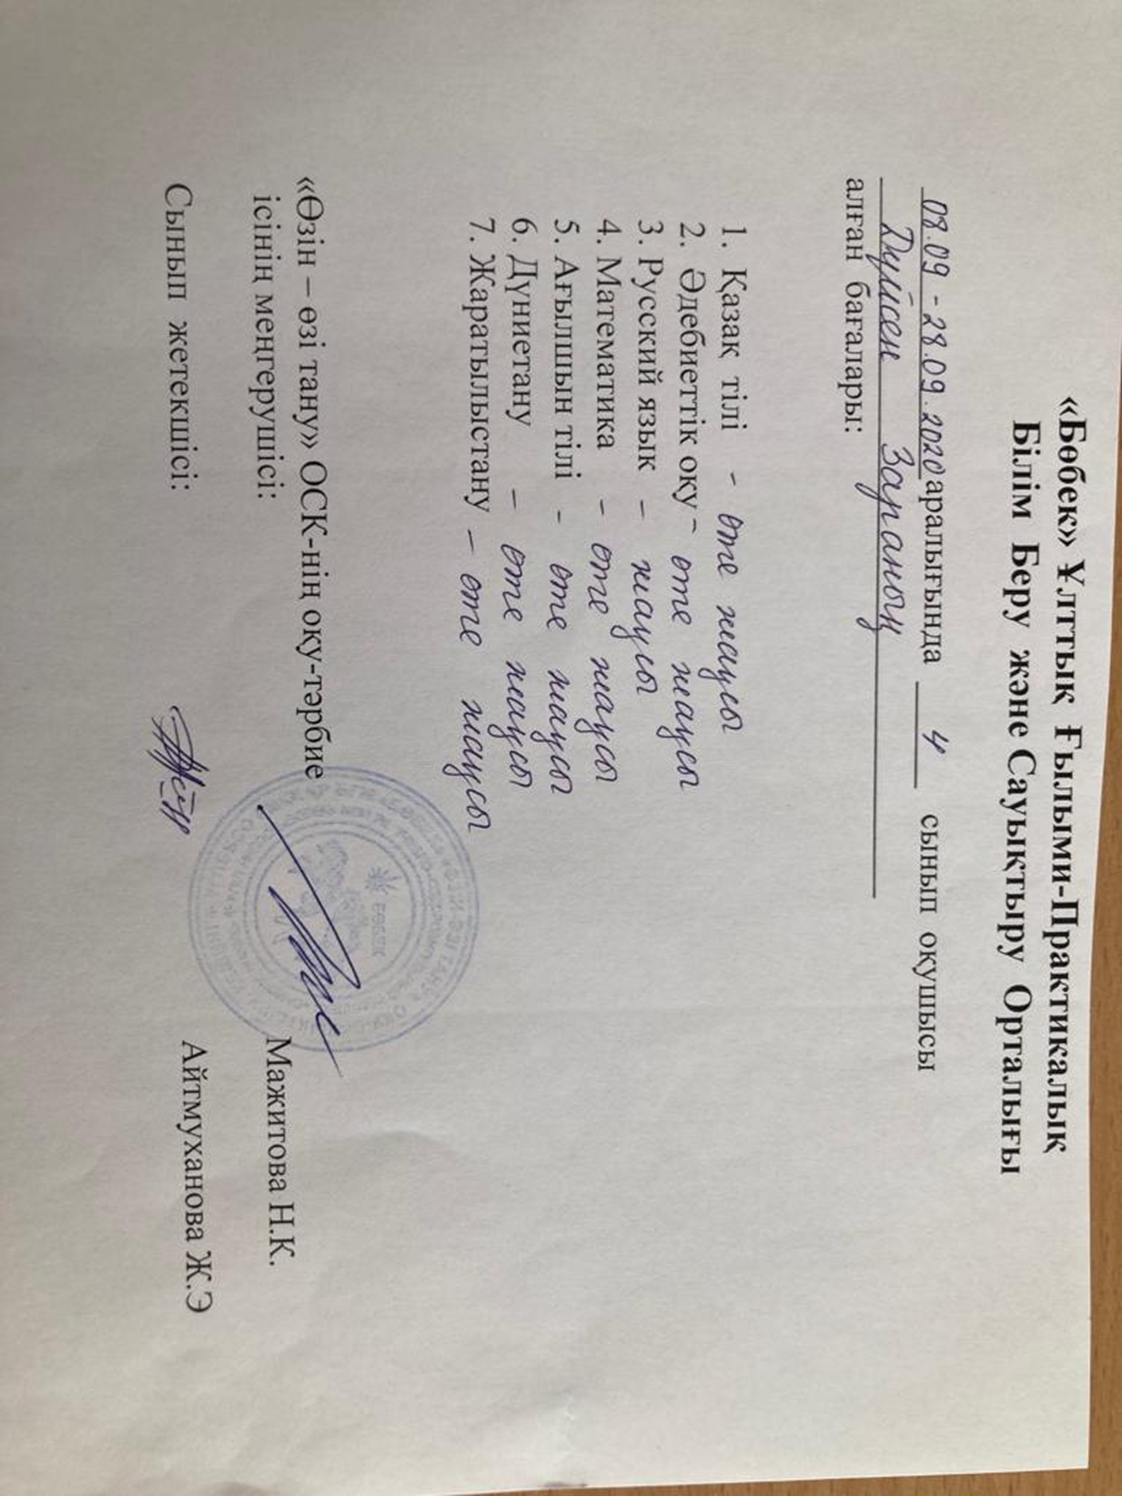 «Бөбек» Ұлттық Ғылыми-Практикалық
Білім Беру және Сауықтыру Орталығы
08.09 - 28.09.2020 аралығында 4 сынып оқушысы
Дүйсен Зараның
алған бағалары:
1. Қазақ тілі - өте жақсы
2. Әдебиеттік оқу - өте жақсы
3. Русский язык - жақсы
4. Математика - өте жақсы
5. Ағылшын тілі - өте жақсы
6. Дүниетану - өте жақсы
7. Жаратылыстану – өте жақсы
«Өзін – өзі тану» ОСК-нің оқу-тәрбие
ісінің меңгерушісі: Мажитова Н.К.
Сынып жетекшісі: Айтмуханова Ж.Э
БӨБЕК